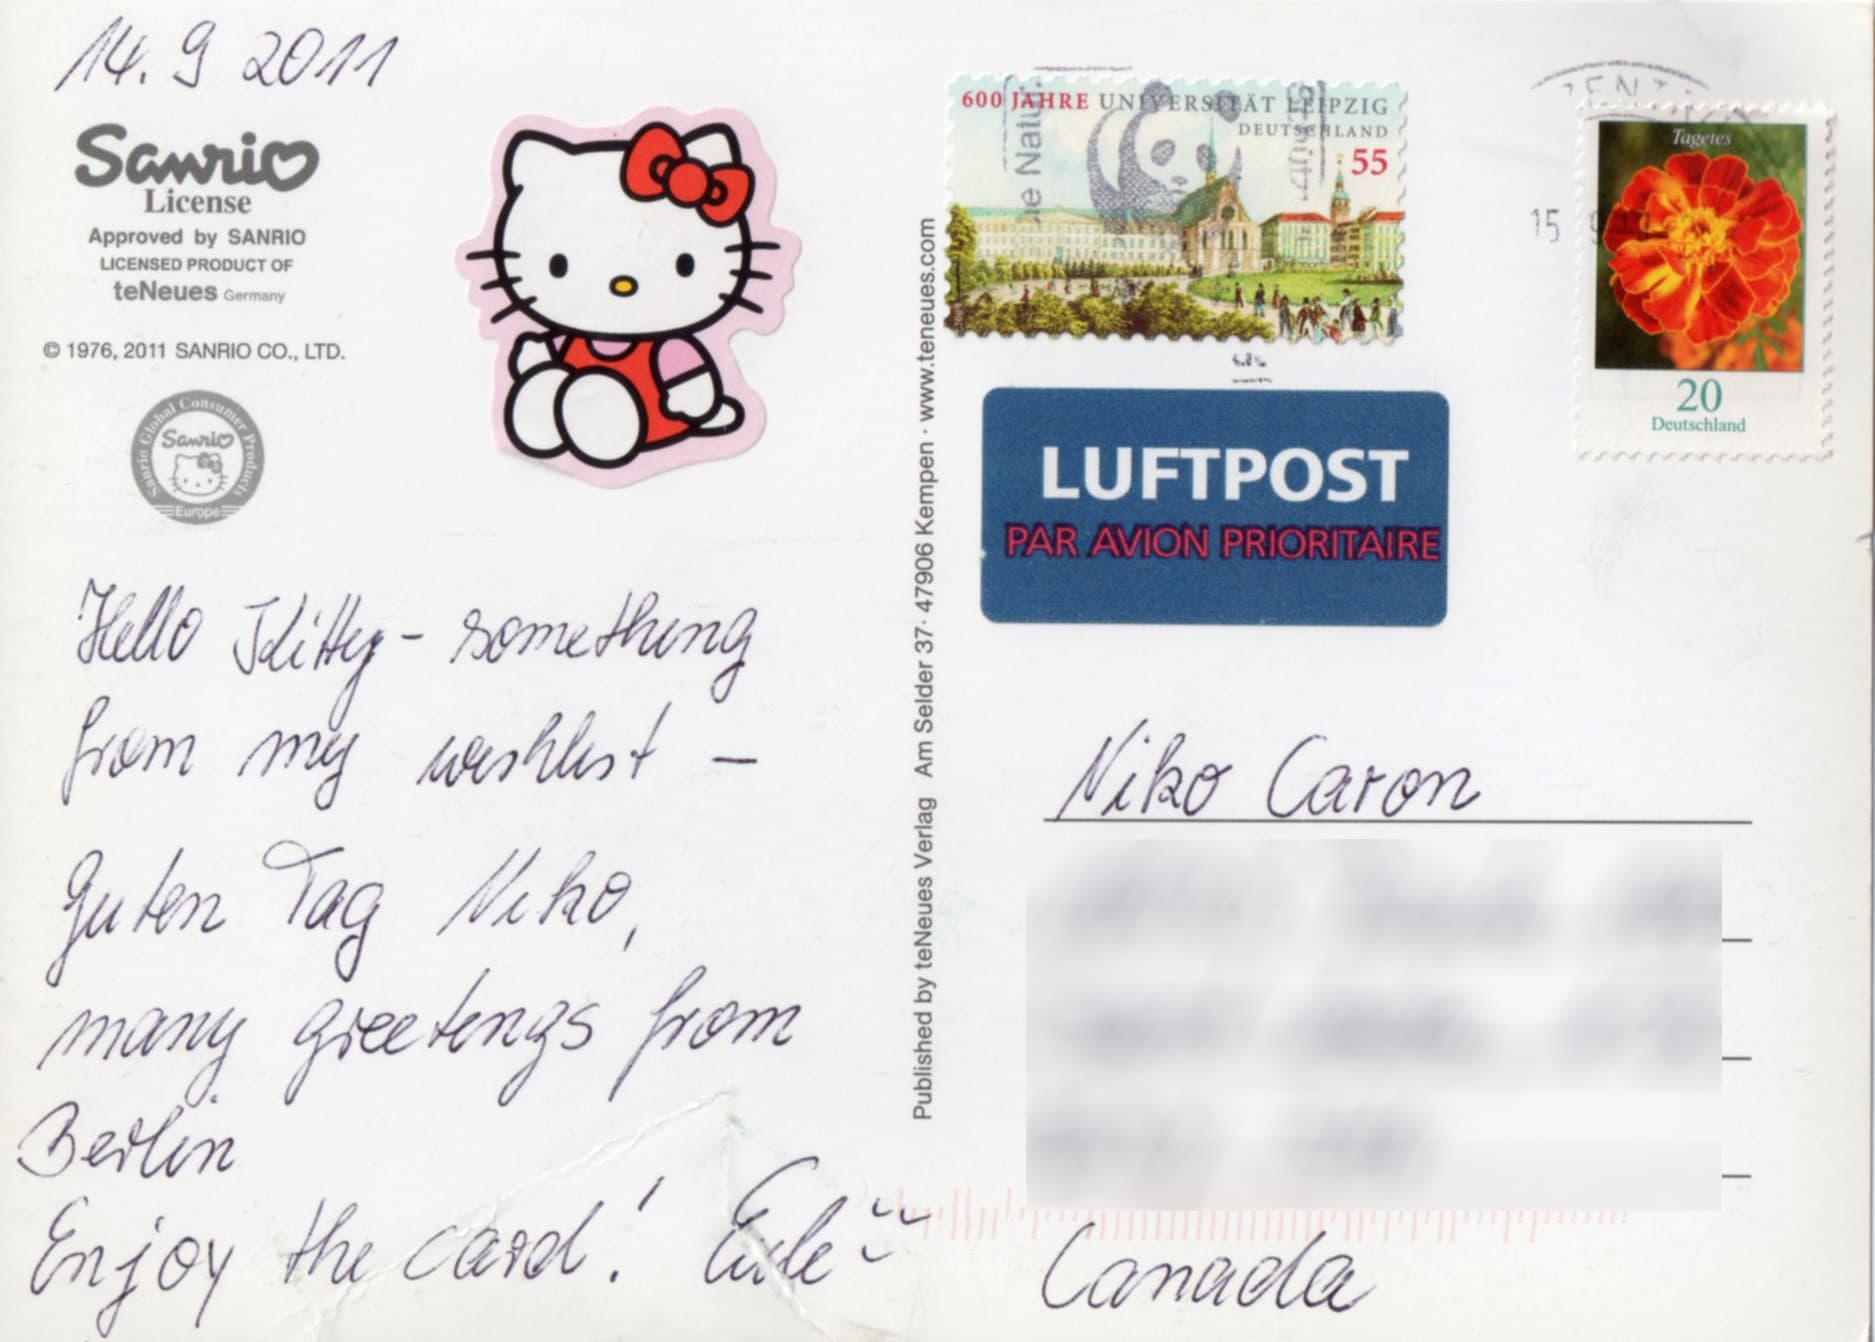 14. 9 2011
Sanrio
License
Approved by SANRIO
LICENSED PRODUCT OF
teNeues Germany
© 1976, 2011 SANRIO CO., LTD.
Sanrio Global Consumer Products
Sanrio
Europe
Hello Kitty - something
from my wishlist -
Guten Tag Niko,
many greetings from
Berlin
Enjoy the card! Eule
Published by teNeues Verlag Am Selder 37 · 47906 Kempen · www.teneues.com
600 JAHRE UNIVERSITÄT LEIPZIG
DEUTSCHLAND
55
Natur
15
Tagetes
20
Deutschland
LUFTPOST
PAR AVION PRIORITAIRE
Niko Caron
Canada